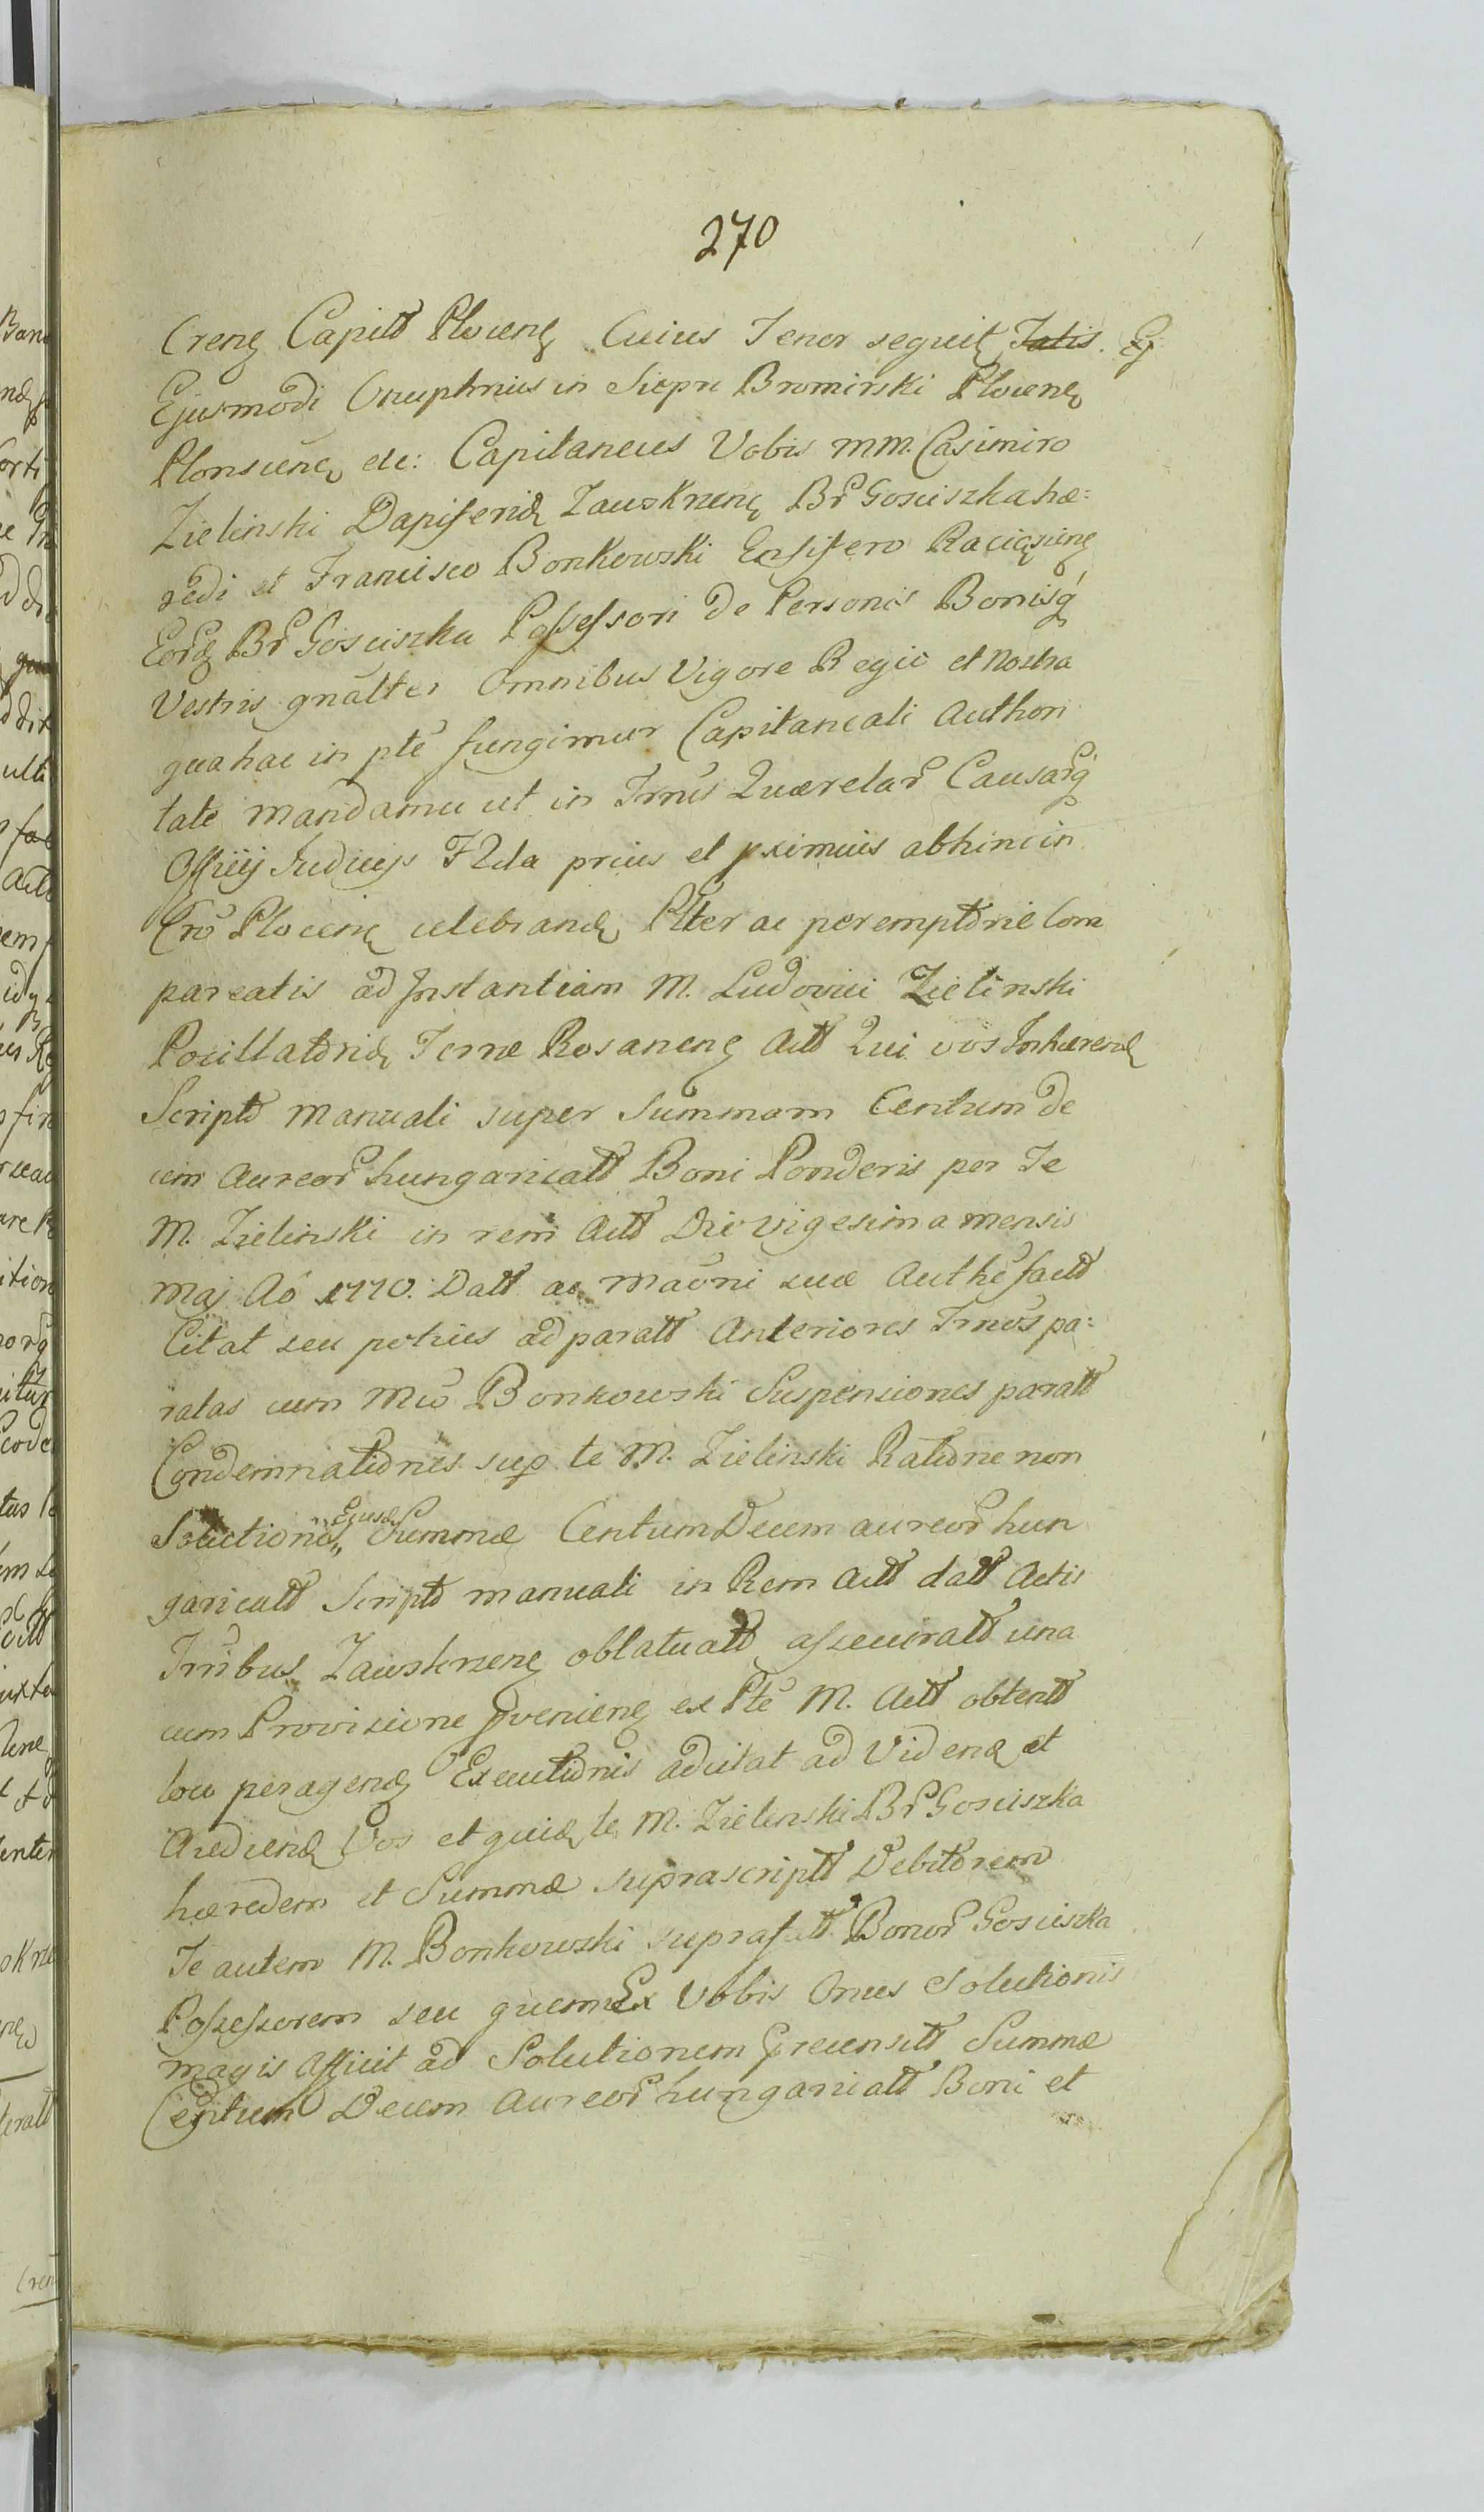 270
Crenꝫ Capitt Plocenꝫ Cuius Tenor sequitꝫ Talis. Ej
Ejusmodi Onuphrius in Siepu Bromirski Plocenꝫ
Plonscenꝫ etc: Capitaneus Vobis MM. Casimiro
Zielinski Dapiferidꝫ Zauskrzenꝫ Br Gosciszka hæ=
redi et Francisco Bonkowski Ensifero Raciąsienꝫ
Eordꝫ Br Gosciszka Possessori de Personis Bonisq
Vestris gnalter Omnibus Vigore Regie et Nostra
qua hac in pte fungimur Capitaneali Authori
tate Mandamu ut in Trnis Quærelar Causarq
Officij Judicijs prius et pximius abhinc in
Cro Plocenꝫ celebrandꝫ Plter ac peremptorie Com
pareatis ad Instantiam M. Ludovici Zielinski
Pocillatoridꝫ Terræ Rosanenꝫ Actt Qui vos Inhærendꝫ
Scripto Manuali super Summam Centum De
cem Aureor hungaricalt Boni Ponderis per Te
M. Zielinski in rem Actt Die vigesima mensis
Maj Ao 1770. Datt ac Maoni suæ Authe factt
Citat seu potius ad paratt Anteriores Trnos pa=
ratas cum Mco Bonkowski Suspensiones paratt
Condemnationes sup te M. Zielinski Ratione non
Solutionis,, Ejusd Summæ Centum Decem aureor hun
garicalt Scripto manuali in Rem Actt datt Actis
Trribus Zawskrzenꝫ oblatuatt assecuratt una
cum Provisione pvenienꝫ ex Pte M. Actt obtentt
loco peragendꝫ Executionis adcitat ad Videndꝫ et
Audiendꝫ Vos et quidꝫ te M. Zielenski Br Gosciszka
hæredem et Summæ suprascriptt Debitorem
Te autem M. Bonkowski suprafatt Bonor Gosciszka
Possessorem seu quem Ex Vobis Onus Solutionis
magis afficit ad Solutionem precensitt Summæ
Centum Decem Aureor hungaricalt Boni et